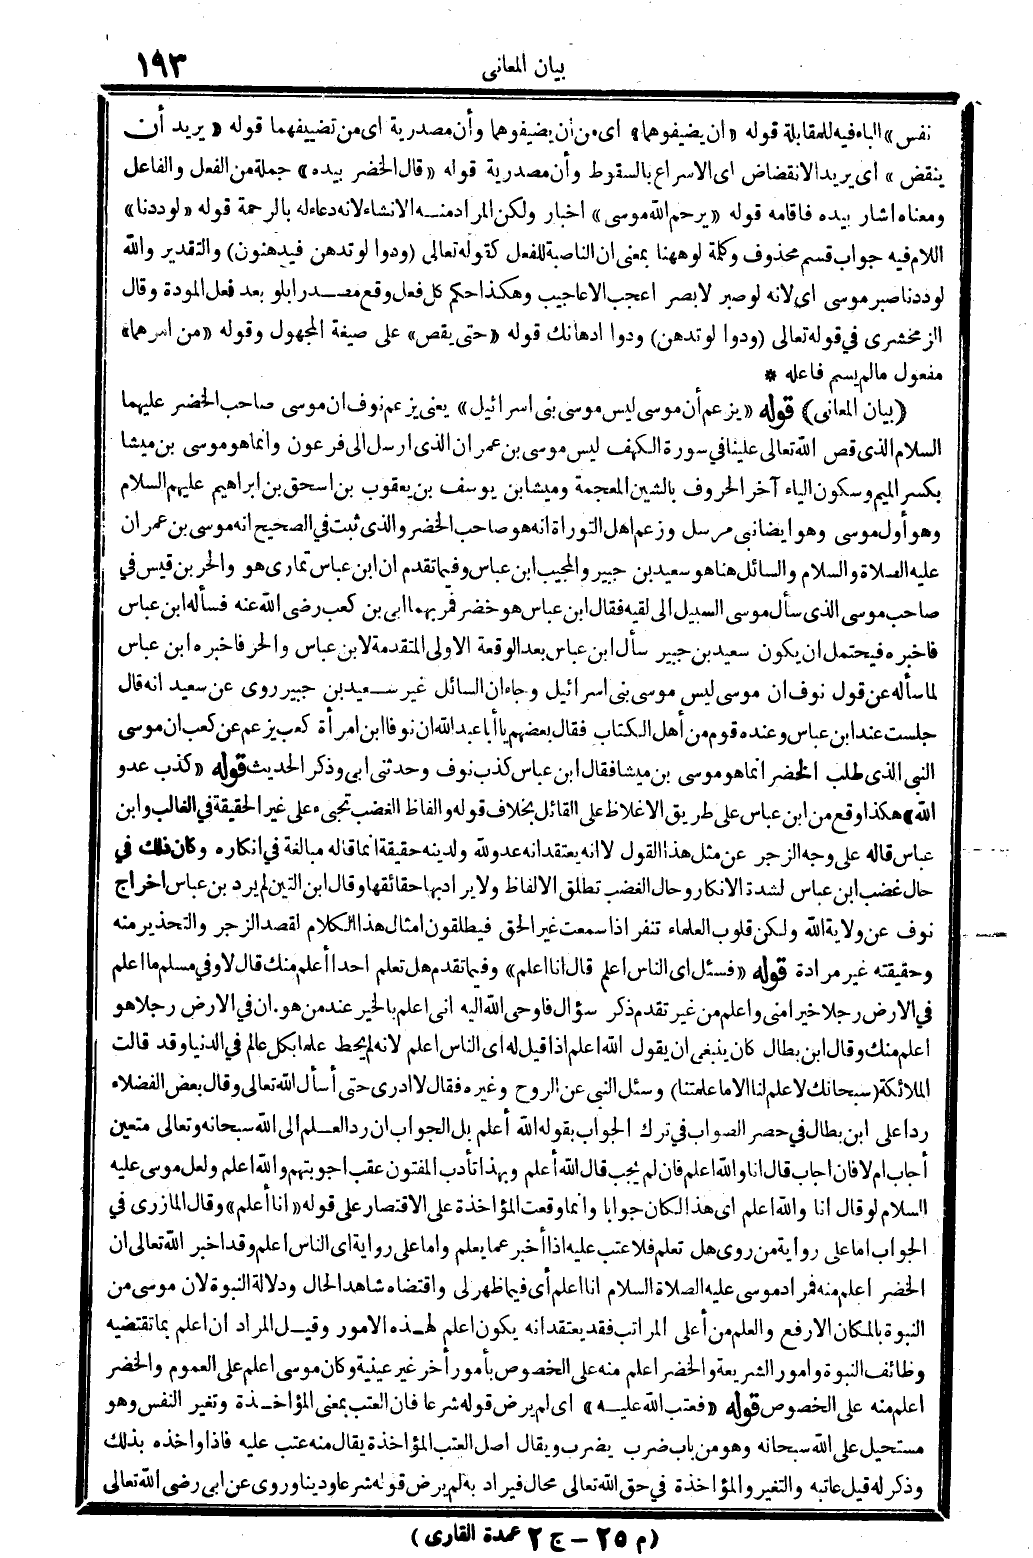 بيان المعانى
١٩٣
نفس» الباء فيه للمقابلة قوله «ان يضيفوهما» اى من أن يضيفوهما وأن مصدرية اى من تضييفهما قوله «يريد أن
ينقض» اى يريد الانقضاض اى الاسراع بالسقوط وأن مصدرية قوله «قال الخضر بيده» جملة من الفعل والفاعل
ومعناه اشار بيده فاقامه قوله «يرحم الله موسى» اخبار ولكن المراد منه الانشاء لانه دعاء له بالرحمة قوله «لوددنا»
اللام فيه جواب قسم محذوف وكلمة لو ههنا بمعنى ان الناصبة للفعل كقوله تعالى (ودوا لو تدهن فيدهنون) والتقدير والله
لوددنا صبر موسى اى لانه لو صبر لابصر اعجب الاعاجيب وهكذا حكم كل فعل وقع مصدرا بلو بعد فعل المودة وقال
الزمخشرى في قوله تعالى (ودوا لو تدهن) ودوا ادهانك قوله «حتى يقص» على صيغة المجهول وقوله «من امرهما»
مفعول مالم يسم فاعله *
(بيان المعانى) قوله «يزعم أن موسى ليس موسى بنى اسرائيل» يعنى يزعم نوف ان موسى صاحب الخضر عليهما
السلام الذى قص الله تعالى علينا في سورة الكهف ليس موسى بن عمران الذى ارسل الى فرعون وانما هو موسى بن ميشا
بكسر الميم وسكون الياء آخر الحروف بالشين المعجمة وميشا بن يوسف بن يعقوب بن اسحق بن ابراهيم عليهم السلام
وهو أول موسى وهو ايضا نبى مرسل وزعم اهل التوراة انه هو صاحب الخضر والذى ثبت في الصحيح انه موسى بن عمران
عليه الصلاة والسلام والسائل هنا هو سعيد بن جبير والمجيب ابن عباس وفيما تقدم ان ابن عباس تمارى هو والحر بن قيس في
صاحب موسى الذى سأل موسى السبيل الى لقيه فقال ابن عباس هو خضر فمر بهما ابى بن كعب رضى الله عنه فسأله ابن عباس
فاخبره فيحتمل ان يكون سعيد بن جبير سأل ابن عباس بعد الوقعة الاولى المتقدمة لابن عباس والحر فاخبره ابن عباس
لما سأله عن قول نوف ان موسى ليس موسى بنى اسرائيل وجاء ان السائل غير سعيد بن جبير روى عن سعيد انه قال
جلست عند ابن عباس وعنده قوم من أهل الكتاب فقال بعضهم يا أبا عبد الله ان نوفا ابن امرأة كعب يزعم عن كعب ان موسى
النبى الذى طلب الخضر انما هو موسى بن ميشا فقال ابن عباس كذب نوف وحدثنى ابى وذكر الحديث قوله «كذب عدو
الله» هكذا وقع من ابن عباس على طريق الاغلاظ على القائل بخلاف قوله والفاظ الغضب تجىء على غير الحقيقة في الغالب وابن
عباس قاله على وجه الزجر عن مثل هذا القول لا انه يعتقد انه عدو لله ولدينه حقيقة انما قاله مبالغة في انكاره وكان ذلك في
حال غضب ابن عباس لشدة الانكار وحال الغضب تطلق الالفاظ ولا يراد بها حقائقها وقال ابن التين لم يرد بن عباس اخراج
نوف عن ولاية الله ولكن قلوب العلماء تنفر اذا سمعت غير الحق فيطلقون امثال هذا الكلام لقصد الزجر والتحذير منه
وحقيقته غير مرادة قوله «فسئل اى الناس اعلم قال انا اعلم» وفيما تقدم هل تعلم احدا أعلم منك قال لا وفي مسلم ما اعلم
في الارض رجلا خيرا منى واعلم من غير تقدم ذكر سؤال فاوحى الله اليه انى اعلم بالخير عند من هو. ان في الارض رجلا هو
اعلم منك وقال ابن بطال كان ينبغى ان يقول الله اعلم اذا قيل له اى الناس اعلم لانه لم يحط علما بكل عالم في الدنيا وقد قالت
الملائكة (سبحانك لا علم لنا الا ما علمتنا) وسئل النبى عن الروح وغيره فقال لا ادرى حتى أسأل الله تعالى وقال بعض الفضلاء
ردا على ابن بطال في حصر الصواب في ترك الجواب بقوله الله أعلم بل الجواب ان رد العلم الى الله سبحانه وتعالى متعين
أجاب ام لا فان اجاب قال انا والله اعلم فان لم يجب قال الله أعلم وبهذا تأدب المفتون عقب اجوبتهم والله اعلم ولعل موسى عليه
السلام لو قال انا والله اعلم اى هذا لكان جوابا وانما وقعت المؤاخذة على الاقتصار على قوله «انا أعلم» وقال المازرى في
الجواب اما على رواية من روى هل تعلم فلا عتب عليه اذا أخبر عما يعلم واما على رواية اى الناس اعلم وقد اخبر الله تعالى ان
الخضر اعلم منه فمراد موسى عليه الصلاة السلام انا اعلم أى فيما ظهر لى واقتضاه شاهد الحال ودلالة النبوة لان موسى من
النبوة بالمكان الارفع والعلم من أعلى المراتب فقد يعتقد انه يكون اعلم لهذه الامور وقيل المراد ان اعلم بما تقتضيه
وظائف النبوة وامور الشريعة والخضر اعلم منه على الخصوص بأمور أخر غير عينية وكان موسى اعلم على العموم والخضر
اعلم منه على الخصوص قوله «فعتب الله عليه» اى لم يرض قوله شرعا فان العتب بمعنى المؤاخذة وتغير النفس وهو
مستحيل على الله سبحانه وهو من باب ضرب يضرب ويقال اصل العتب المؤاخذة يقال منه عتب عليه فاذا واخذه بذلك
وذكر له قيل عاتبه والتغير والمؤاخذة في حق الله تعالى محال فيراد به لم يرض قوله شرعا ودينا وروى عن ابى رضى الله تعالى
(م ٢٥ - ج ٢ عمدة القارى)